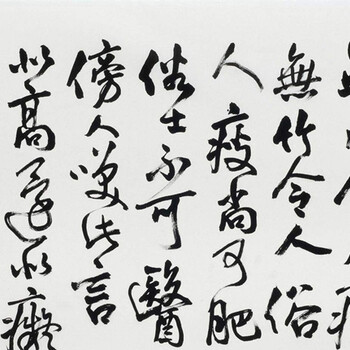 無竹令人俗
人瘦尚可肥
俗士不可醫
傍人咲此言
似高還似癡